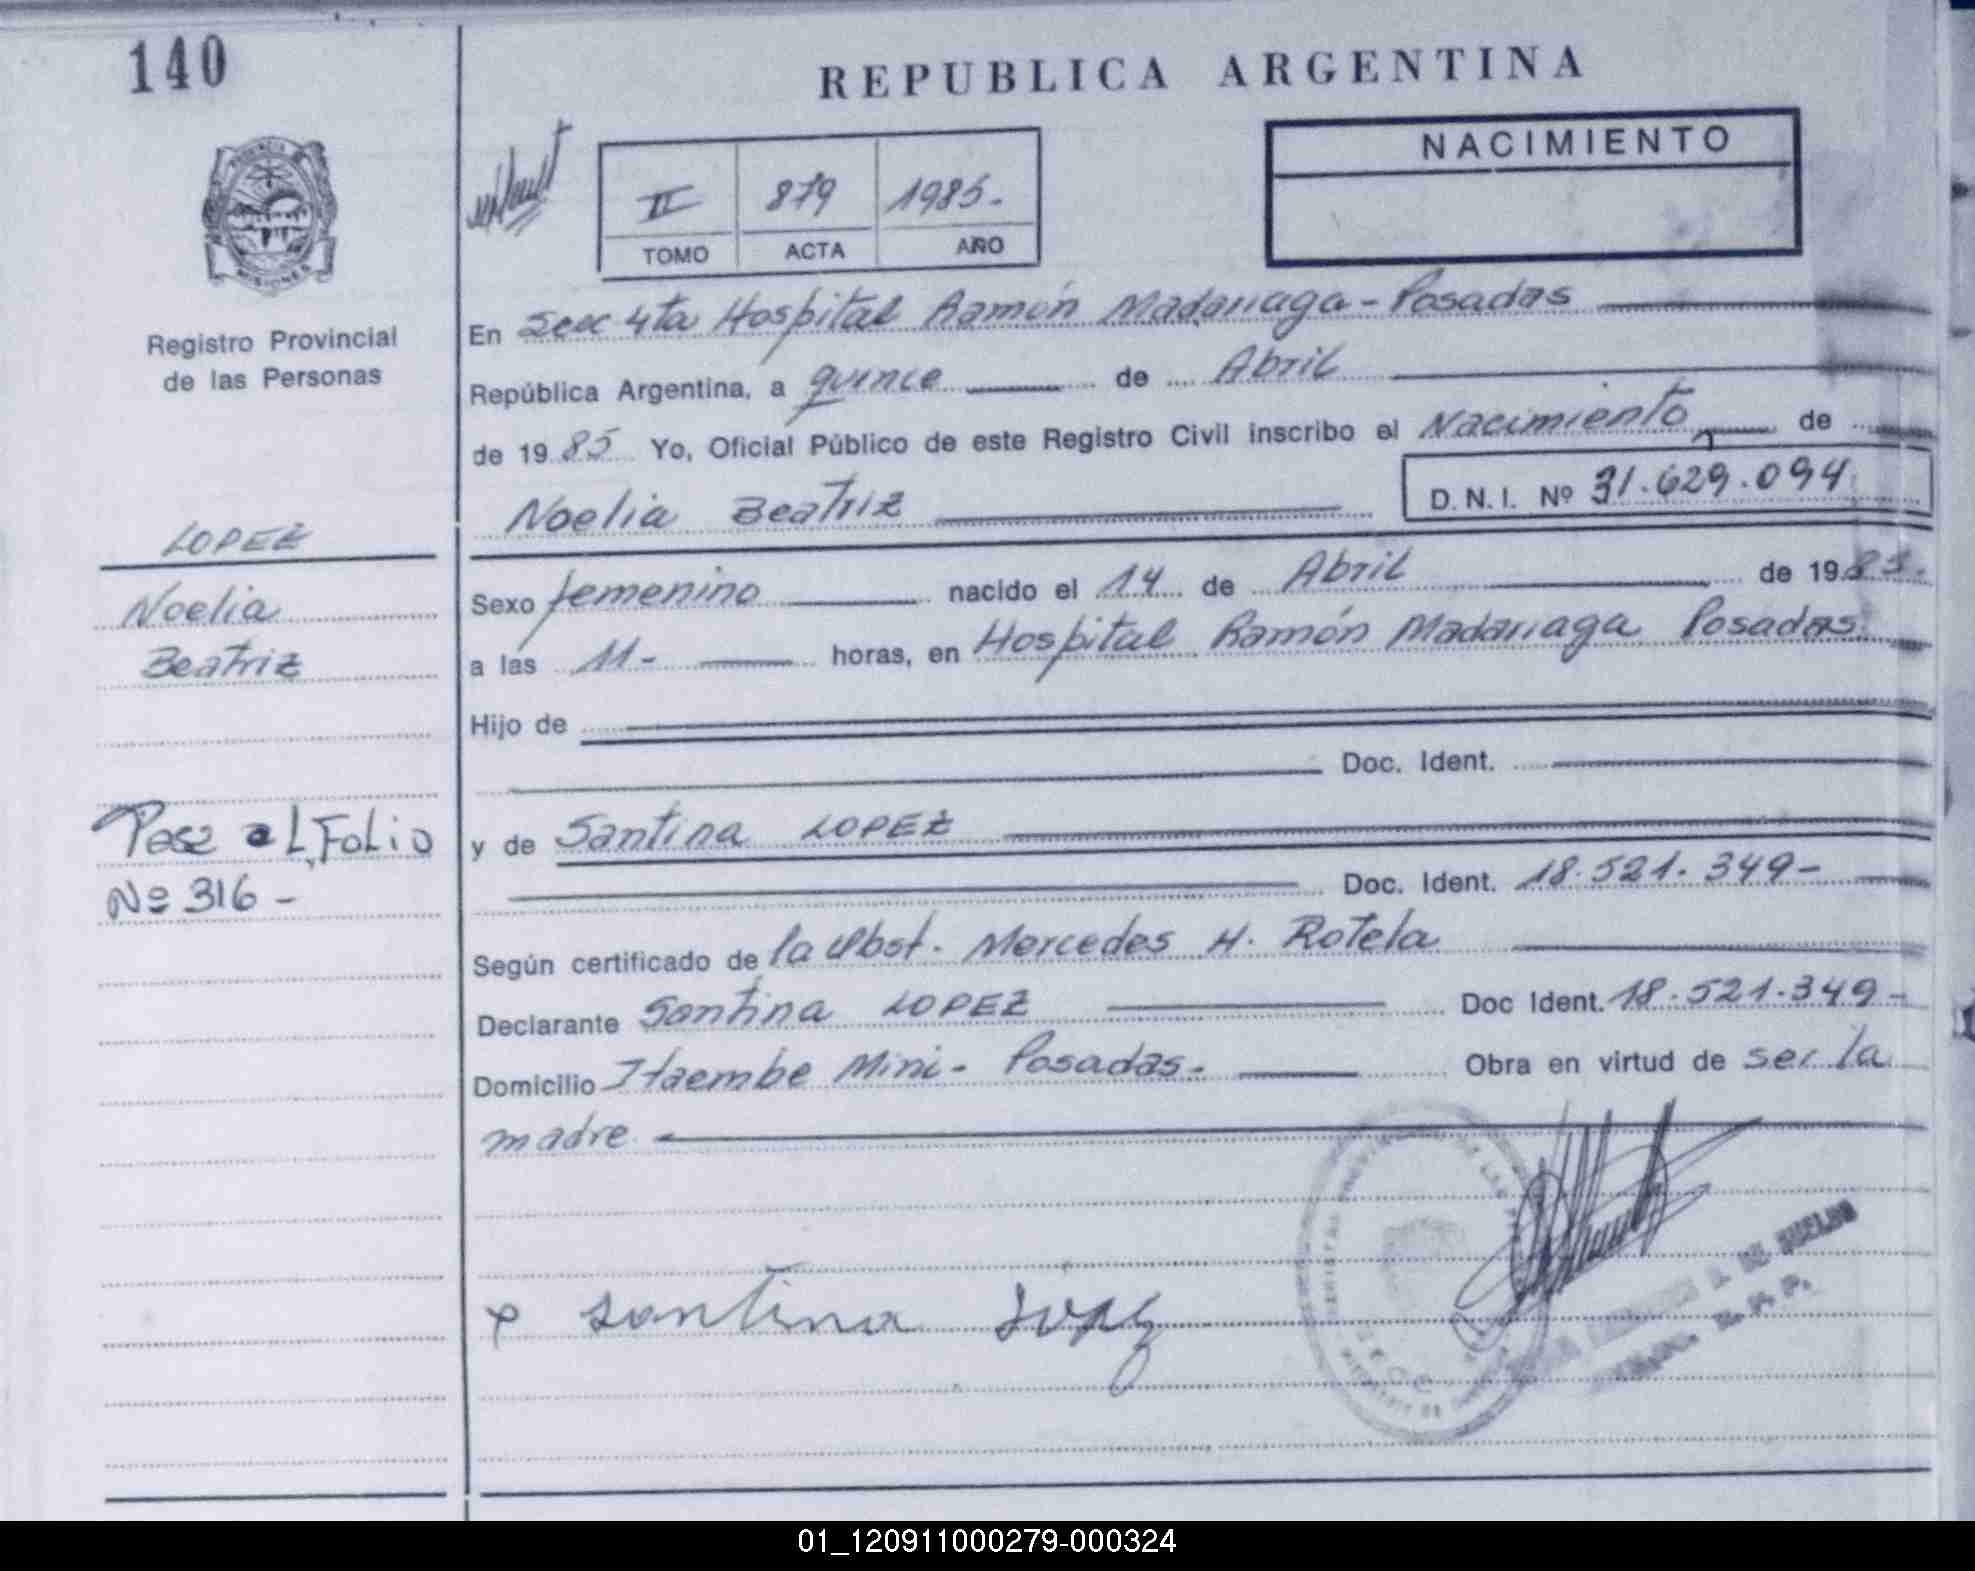 140
REPUBLICA ARGENTINA
NACIMIENTO
II 879 1985.-
TOMO ACTA AÑO
PROVINCIA DE
MISIONES
Registro Provincial
de las Personas
En Secc 4ta Hospital Ramón Madariaga - Posadas
República Argentina, a quince de Abril
de 1985 Yo, Oficial Público de este Registro Civil inscribo el Nacimiento de
Noelia Beatriz D. N. I. Nº 31.629.094
LOPEZ
Noelia
Beatriz
Sexo femenino nacido el 14 de Abril de 1985.
a las 11- horas, en Hospital Ramón Madariaga Posadas
Hijo de
Doc. Ident.
Pasa al Folio
Nº 316 -
y de Santina LOPEZ
Doc. Ident. 18.521.349-
Según certificado de la Obst. Mercedes H. Rotela
Declarante Santina LOPEZ Doc Ident. 18.521.349-
Domicilio Itaembe Mini - Posadas. Obra en virtud de ser la
madre
x santina
01_120911000279-000324